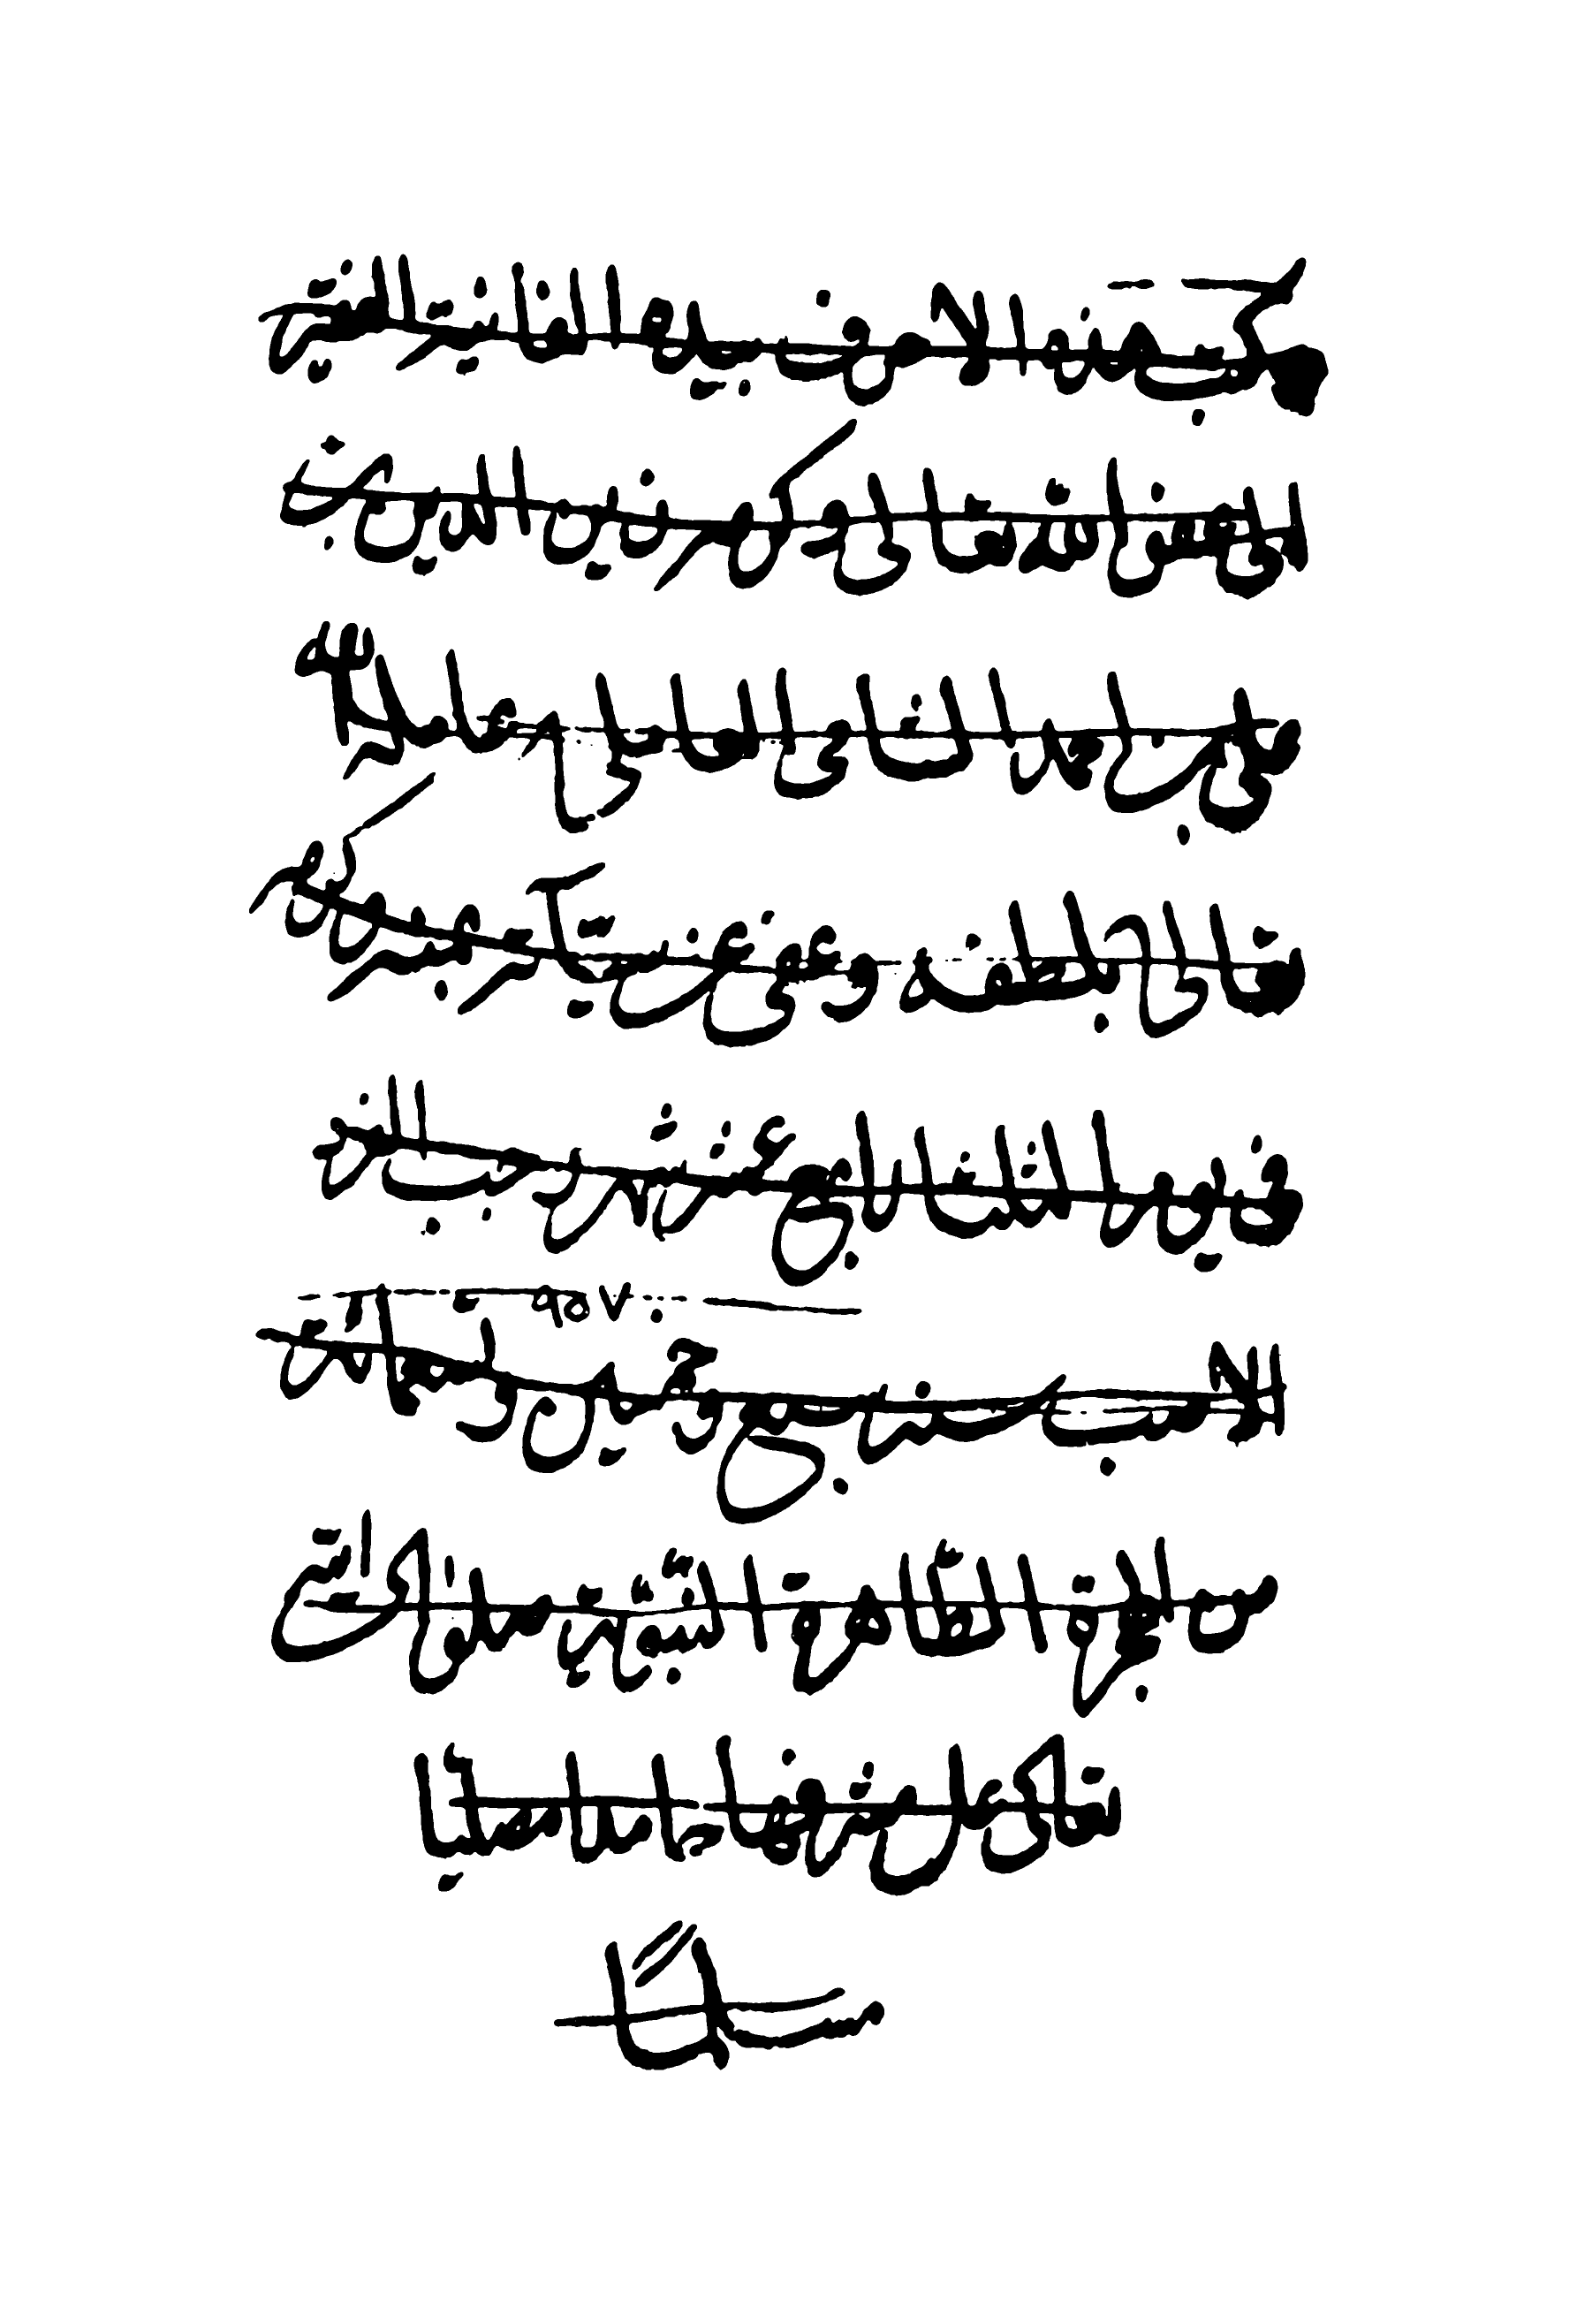 كتب هذه الاحرف بيده الفانية الفقير
الى عفو الله تعالى وكرمه زين الدين بن
علي بن احمد الشامي العاملي عامله الله
تعالى بلطفه وعفى عنه بمنه وكرمه
في يوم الثلثا رابع عشر شهر رجب
٩٥٧
الاصب سنة سبع وخمسين
من الهجرة الطاهرة النبوية صلوات الله
تعالى على مشرفها حامدا مصليا
مسلما